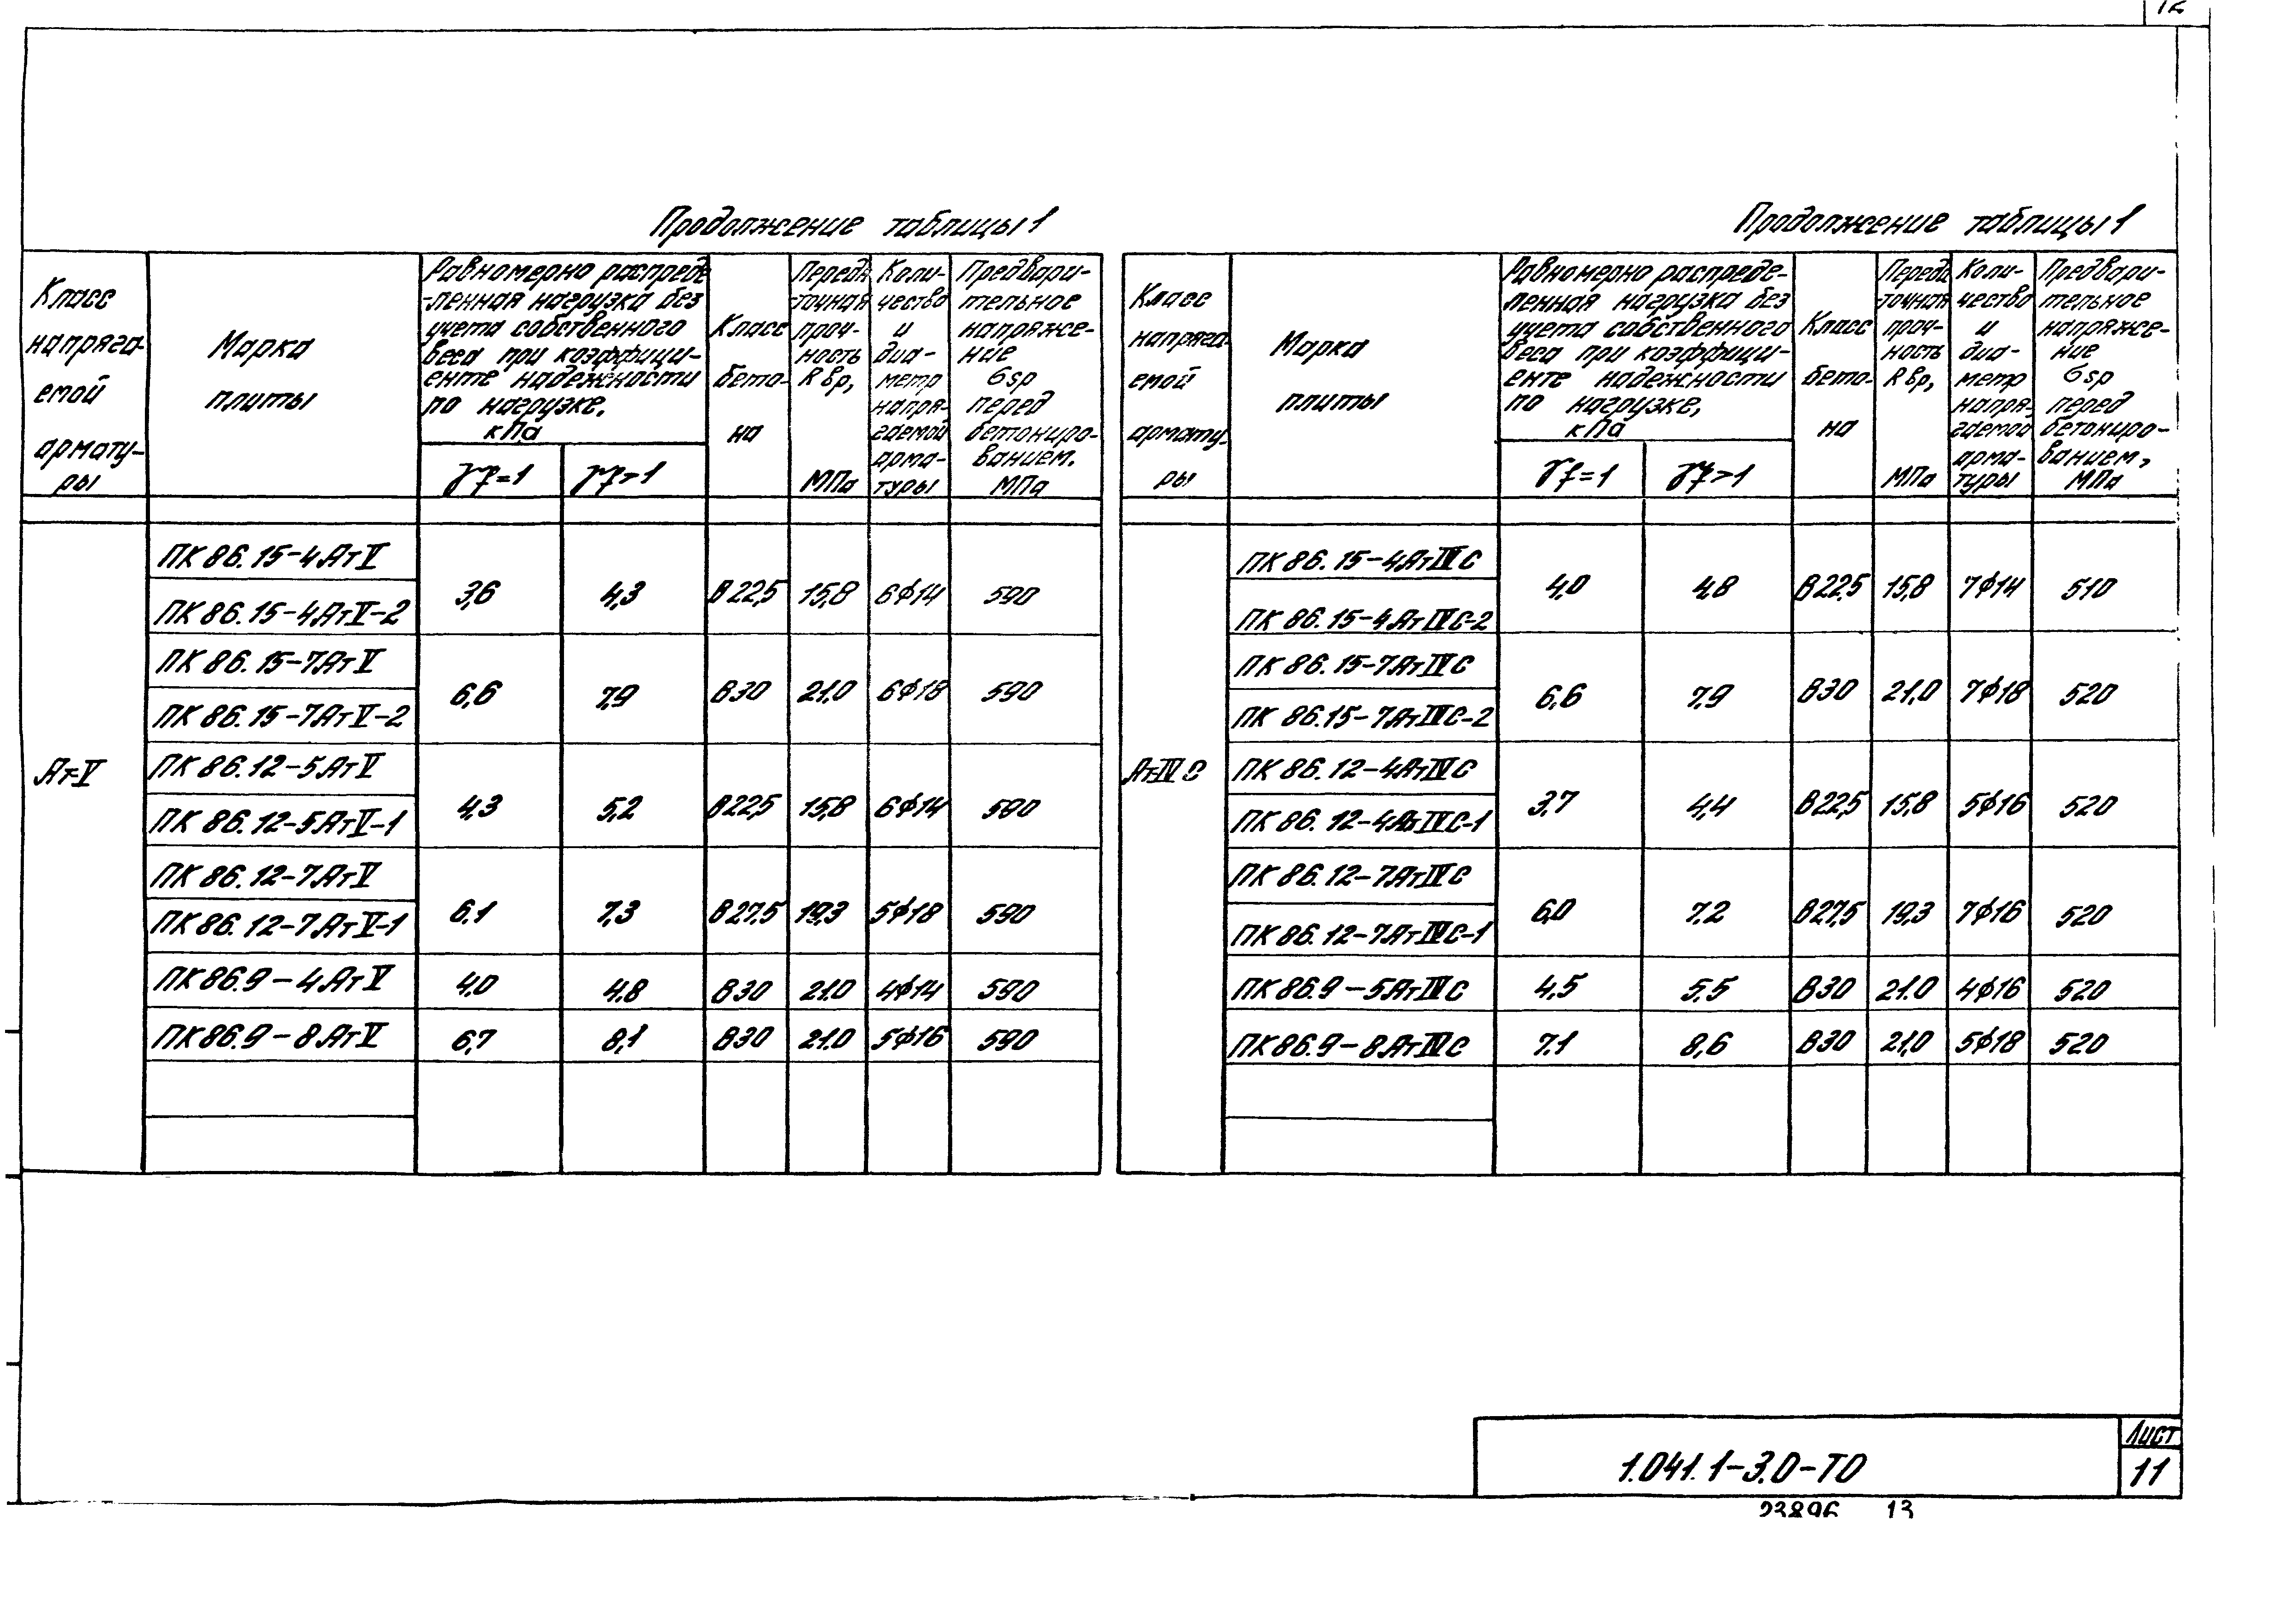 12
Продолжение таблицы 1
Класс
напряга-
емой
армату-
ры
Марка
плиты
Равномерно распреде
-ленная нагрузка без
учета собственного
веса при коэффици-
енте надежности
по нагрузке,
кПа
γf=1
γf>1
Класс
бето-
на
Переда
-точная
проч-
ность
Rвр,
МПа
Коли-
чество
и
диа-
метр
напря-
гаемой
арма-
туры
Предвари-
тельное
напряже-
ние
σsp
перед
бетониро-
ванием.
МПа
Ат-V
ПК 86.15-4АтV
ПК 86.15-4АтV-2
3,6 4,3 В22,5 15,8 6ф14 590
ПК 86.15-7АтV
ПК 86.15-7АтV-2
6,6 7,9 В30 21.0 6ф18 590
ПК 86.12-5АтV
ПК 86.12-5АтV-1
4,3 5,2 В22,5 15,8 6ф14 590
ПК 86.12-7АтV
ПК 86.12-7АтV-1
6.1 7,3 В27,5 19,3 5ф18 590
ПК 86.9-4АтV 4,0 4,8 В30 21.0 4ф14 590
ПК 86.9-8АтV 6,7 8,1 В30 21.0 5ф16 590
Продолжение таблицы 1
Класс
напряга-
емой
армату-
ры
Марка
плиты
Равномерно распреде-
ленная нагрузка без
учета собственного
веса при коэффици-
енте надежности
по нагрузке,
кПа
γf=1
γf>1
Класс
бето-
на
Переда
-точная
проч-
ность
Rвр,
МПа
Коли-
чество
и
диа-
метр
напря-
гаемой
арма-
туры
Предвари-
тельное
напряже-
ние
σsp
перед
бетониро-
ванием,
МПа
Ат-IVС
ПК 86.15-4АтIVС
ПК 86.15-4АтIVС-2
4,0 4,8 В22,5 15,8 7ф14 510
ПК 86.15-7АтIVС
ПК 86.15-7АтIVС-2
6,6 7,9 В30 21,0 7ф18 520
ПК 86.12-4АтIVС
ПК 86.12-4АтIVС-1
3,7 4,4 В22,5 15,8 5ф16 520
ПК 86.12-7АтIVС
ПК 86.12-7АтIVС-1
6,0 7,2 В27,5 19,3 7ф16 520
ПК 86.9-5АтIVС 4,5 5,5 В30 21.0 4ф16 520
ПК 86.9-8АтIVС 7.1 8,6 В30 21,0 5ф18 520
1.041.1-3.0-ТО
Лист
11
23896 13